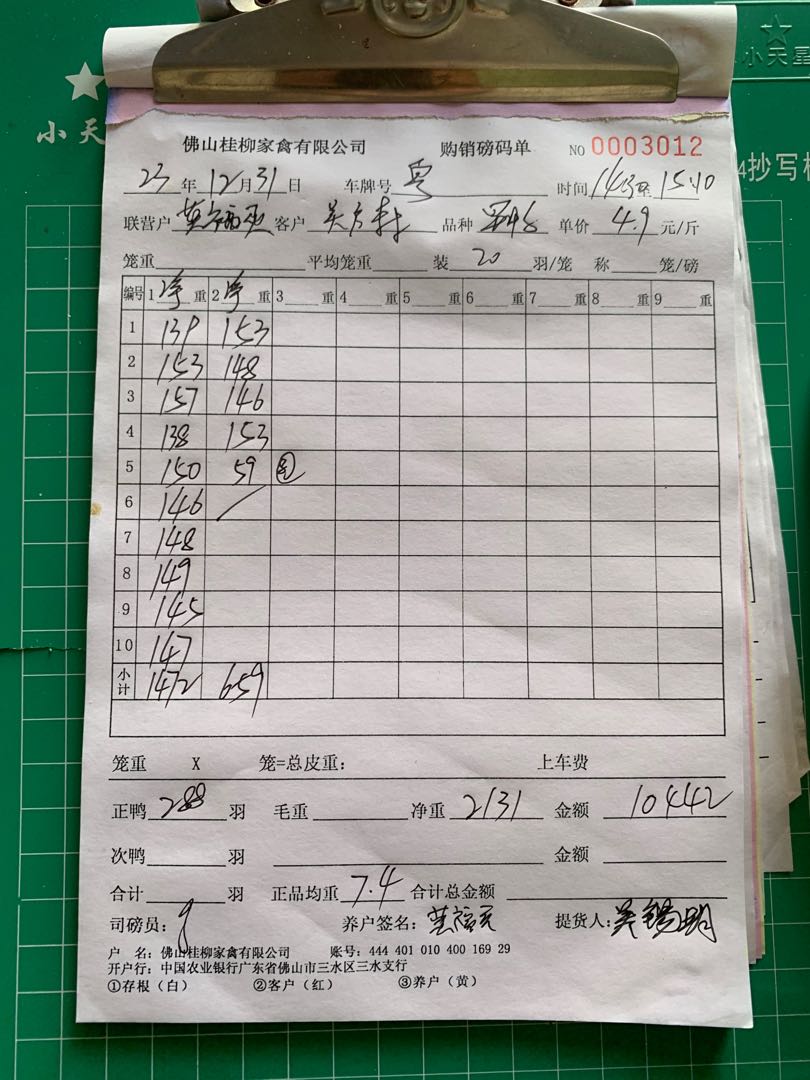 小天
小天星
4抄写板
佛山桂柳家禽有限公司 购销磅码单 NO 0003012
23年12月31日 车牌号 粤 时间 至15:10
联营户 客户 品种 单价 4.9 元/斤
笼重 平均笼重 装 20 羽/笼 称 笼/磅
编号 1 净 重 2 净 重 3 重 4 重 5 重 6 重 7 重 8 重 9 重
1 139 153
2 153 148
3 157 146
4 138 153
5 150 59
6 146
7 148
8 149
9 145
10 147
小计 1472 659
笼重 X 笼=总皮重: 上车费
正鸭 288 羽 毛重 净重 2131 金额 10442
次鸭 羽 金额
合计 羽 正品均重 7.4 合计总金额
司磅员: 养户签名: 提货人: 吴锡明
户 名: 佛山桂柳家禽有限公司 账号: 444 401 010 400 169 29
开户行: 中国农业银行广东省佛山市三水区三水支行
①存根(白) ②客户(红) ③养户(黄)